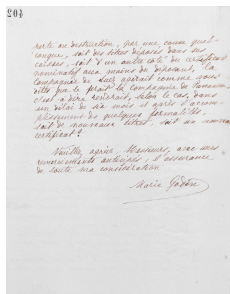 204
perte ou destruction, par une cause quel-
conque, soit des titres déposés dans ses
caisses, soit d'un autre côté du certificat
nominatif aux mains du déposant, la
Compagnie de Suez opérait comme vous
dites que le fait la Compagnie de Panama,
c'est à dire rendrait, selon le cas, dans
un délai de six mois et après l'accom-
plissement de quelques formalités,
soit de nouveaux titres, soit un nouveau
certificat?
Veuillez agréer, Messieurs, avec mes
remerciements anticipés, l'assurance
de toute ma considération
Marie Godon